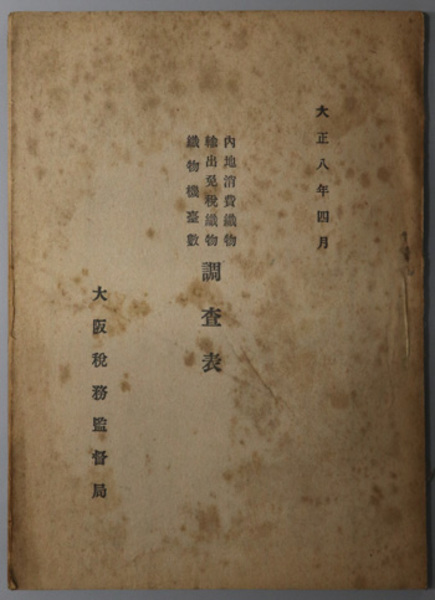 大正八年四月
內地消費織物
輸出免稅織物
織物機臺數
調査表
大阪稅務監督局